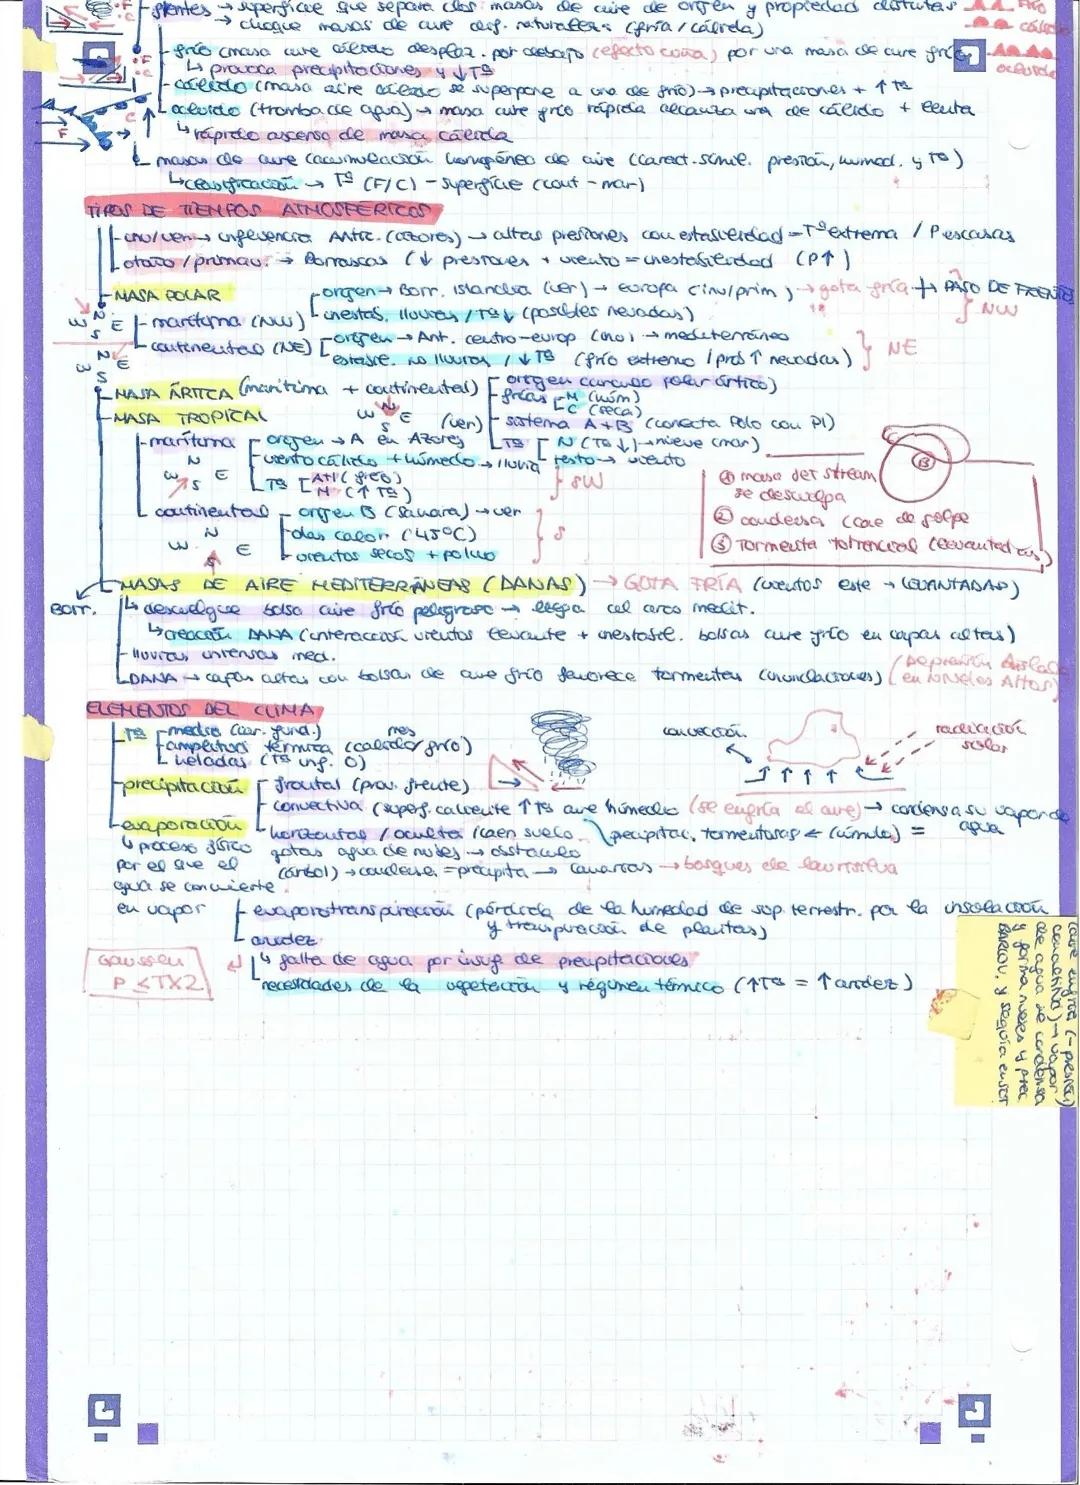 frentes → superficie que separa dos masas de aire de origen y propiedad distintas
→ choque masas de aire dif. naturaleza (fría/cálida)
frío (masa aire cálido desplaz. por debajo (efecto cuña) por una masa de aire frío
↳ provoca precipitaciones y ↓Tª
cálido (masa aire cálido se superpone a una de frío) → precipitaciones + ↑Tª
ocluido
ocluido (tromba de agua) → masa aire frío rápida alcanza una de cálido + lenta
↳ rápido ascenso de masa cálida
masas de aire (acumulación homogénea de aire (caract. simil. presión, humed. y Tª)
↳ clasificación → Tª (F/C) - superficie (cont - mar)
TIPOS DE TIEMPOS ATMOSFÉRICOS
inv/ver → influencia Antic. (azores) → altas presiones con estabilidad = Tª extrema / P escasas
otoño/primav. → Borrascas (↓ presiones + viento = inestabilidad (P↑)
MASA POLAR
origen → Borr. Islandia (ver) → europa (inv/prim) → gota fría + PASO DE FRENTES
marítima (NW)
inestab. lluvias / Tª↓ (posibles nevadas)
} NW
continental (NE)
origen → Ant. centro-europ (inv) → mediterráneo
estable. no lluvias / ↓Tª (frío extremo / prob ↑ nevadas)
} NE
MASA ÁRTICA (marítima + continental)
origen (círculo polar ártico)
frías M (húm)
C (seca)
sistema A+B (conecta Polo con PI)
Tª N (Tª↓) → nieve (mar)
resto → viento
MASA TROPICAL
(ver)
N
W E
S
marítima
origen → A en Azores
viento cálido + húmedo → lluvia
} SW
continental
origen B (Sáhara) → ver
olas calor (45ºC)
vientos secos + polvo
} S
① masa Jet stream
se descuelga
② condensa (cae de golpe
③ Tormenta torrencial (levantadas)
MASAS DE AIRE MEDITERRÁNEAS (DANAS) → GOTA FRÍA (vientos este → LEVANTADAS)
Borr.
↳ descuelgue bolsa aire frío peligroso → llega al arco medit.
↳ creación DANA (interacción vientos levante + inestabil. bolsas aire frío en capas altas)
lluvias intensas med.
DANA → capas altas con bolsas de aire frío favorece tormentas (inundaciones)
(Depresión Aislada
en Niveles Altos)
ELEMENTOS DEL CLIMA
Tª
media (car. fund.)
mes
amplitud térmica (cálido/frío)
heladas (Tª inf. 0)
convección
radiación
solar
precipitación
frontal (prov. frente)
convectiva (superf. caliente ↑Tª aire húmedo (se enfría el aire) → condensa su vapor de
agua
precipitac. tormentosas ← (cúmulo) =
evaporación
horizontal / oculta (caen suelo
gotas agua de nubes → obstáculo
(árbol) → condensa = precipita → canarias → bosques de laurisilva
↳ proceso físico
por el que el
agua se convierte
en vapor
evapotranspiración (pérdida de la humedad de sup. terrestr. por la insolación
y transpiración de plantas)
aridez
↳ falta de agua por insuf. de precipitaciones
necesidades de la vegetación y régimen térmico (↑Tª = ↑aridez)
Gaussen
P ≤ TX2
de agua se condensa
y forma nubes y prec